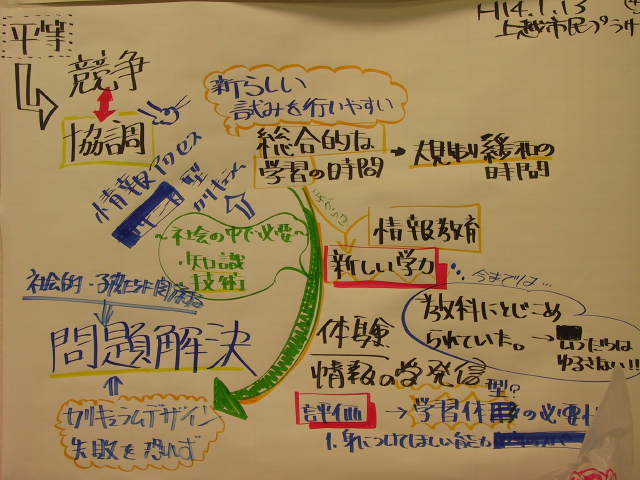 H14.1.13
上越市民プラザ
平等
競争
協調
新らしい
試みを行いやすい
総合的な
学習の時間 → 規制緩和の
時間
情報アクセス
型
カリキュラム
情報教育
新しい学力
〜社会の中で必要〜
・知識
技術
社会的・
問題解決
カリキュラムデザイン
失敗を恐れず
今までは…
教科にとじこめ
られていた。→
ゆるさない!!
体験
情報の受発信
評価 → 学習体
型?
の必要
1. 身についてほしい能力